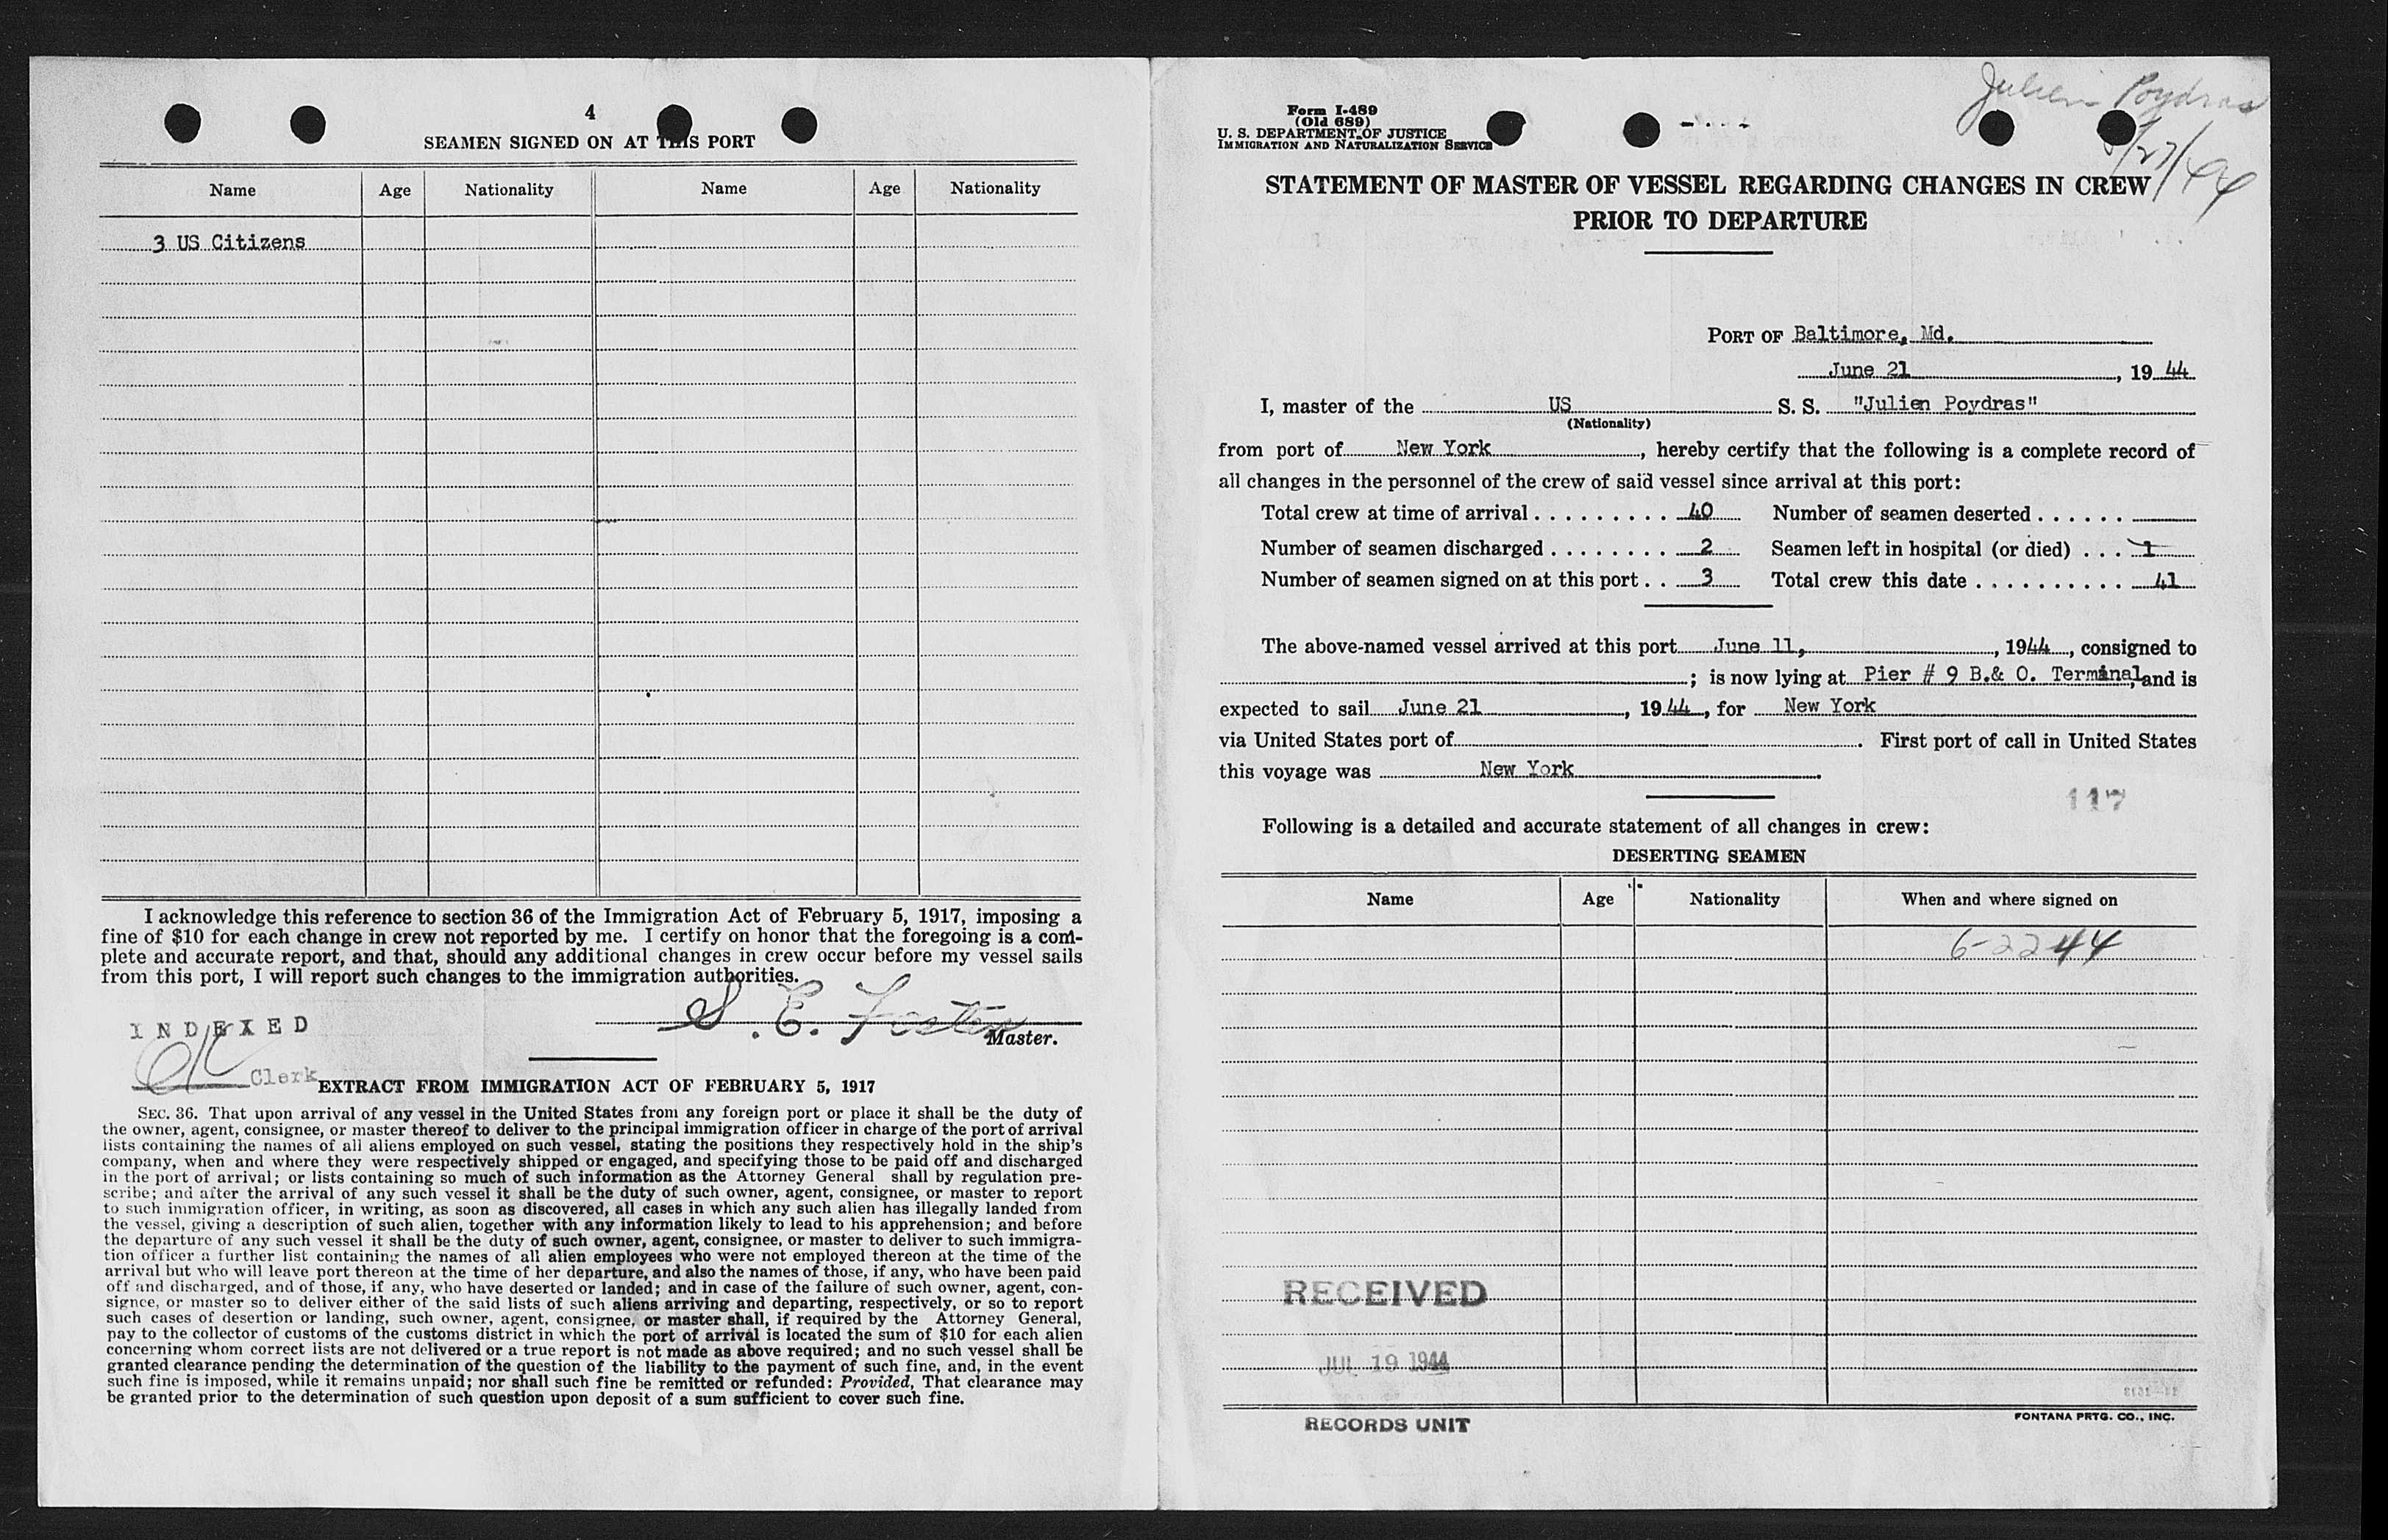 4
SEAMEN SIGNED ON AT THIS PORT
Name Age Nationality Name Age Nationality
3 US Citizens
I acknowledge this reference to section 36 of the Immigration Act of February 5, 1917, imposing a
fine of $10 for each change in crew not reported by me. I certify on honor that the foregoing is a com-
plete and accurate report, and that, should any additional changes in crew occur before my vessel sails
from this port, I will report such changes to the immigration authorities.
S. E. Foster
Master.
INDEXED
OK Clerk
EXTRACT FROM IMMIGRATION ACT OF FEBRUARY 5, 1917
SEC. 36. That upon arrival of any vessel in the United States from any foreign port or place it shall be the duty of
the owner, agent, consignee, or master thereof to deliver to the principal immigration officer in charge of the port of arrival
lists containing the names of all aliens employed on such vessel, stating the positions they respectively hold in the ship's
company, when and where they were respectively shipped or engaged, and specifying those to be paid off and discharged
in the port of arrival; or lists containing so much of such information as the Attorney General shall by regulation pre-
scribe; and after the arrival of any such vessel it shall be the duty of such owner, agent, consignee, or master to report
to such immigration officer, in writing, as soon as discovered, all cases in which any such alien has illegally landed from
the vessel, giving a description of such alien, together with any information likely to lead to his apprehension; and before
the departure of any such vessel it shall be the duty of such owner, agent, consignee, or master to deliver to such immigra-
tion officer a further list containing the names of all alien employees who were not employed thereon at the time of the
arrival but who will leave port thereon at the time of her departure, and also the names of those, if any, who have been paid
off and discharged, and of those, if any, who have deserted or landed; and in case of the failure of such owner, agent, con-
signee, or master so to deliver either of the said lists of such aliens arriving and departing, respectively, or so to report
such cases of desertion or landing, such owner, agent, consignee, or master shall, if required by the Attorney General,
pay to the collector of customs of the customs district in which the port of arrival is located the sum of $10 for each alien
concerning whom correct lists are not delivered or a true report is not made as above required; and no such vessel shall be
granted clearance pending the determination of the question of the liability to the payment of such fine, and, in the event
such fine is imposed, while it remains unpaid; nor shall such fine be remitted or refunded: Provided, That clearance may
be granted prior to the determination of such question upon deposit of a sum sufficient to cover such fine.
Julien Poydras
/27/44
Form I-489
(Old 689)
U. S. DEPARTMENT OF JUSTICE
IMMIGRATION AND NATURALIZATION SERVICE
STATEMENT OF MASTER OF VESSEL REGARDING CHANGES IN CREW
PRIOR TO DEPARTURE
PORT OF Baltimore, Md.
June 21, 1944
I, master of the US S. S. "Julien Poydras"
(Nationality)
from port of New York, hereby certify that the following is a complete record of
all changes in the personnel of the crew of said vessel since arrival at this port:
Total crew at time of arrival 40 Number of seamen deserted
Number of seamen discharged 2 Seamen left in hospital (or died) 1
Number of seamen signed on at this port 3 Total crew this date 41
The above-named vessel arrived at this port June 11, , 1944, consigned to
; is now lying at Pier # 9 B.& O. Terminal, and is
expected to sail June 21, 1944, for New York
via United States port of . First port of call in United States
this voyage was New York.
117
Following is a detailed and accurate statement of all changes in crew:
DESERTING SEAMEN
Name Age Nationality When and where signed on
6-22 44
RECEIVED
JUL 19 1944
RECORDS UNIT
FONTANA PRTG. CO., INC.